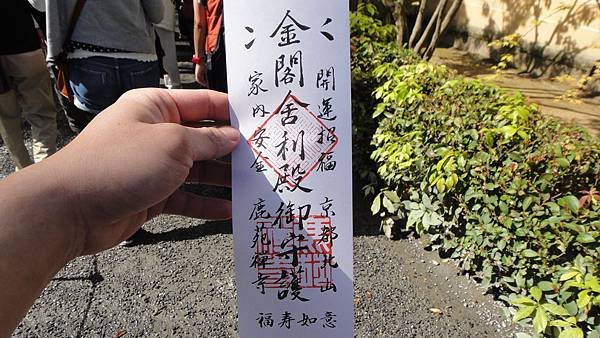 開運招福 京都北山
金閣舍利殿御守護
家内安全 鹿苑禅寺
福寿如意